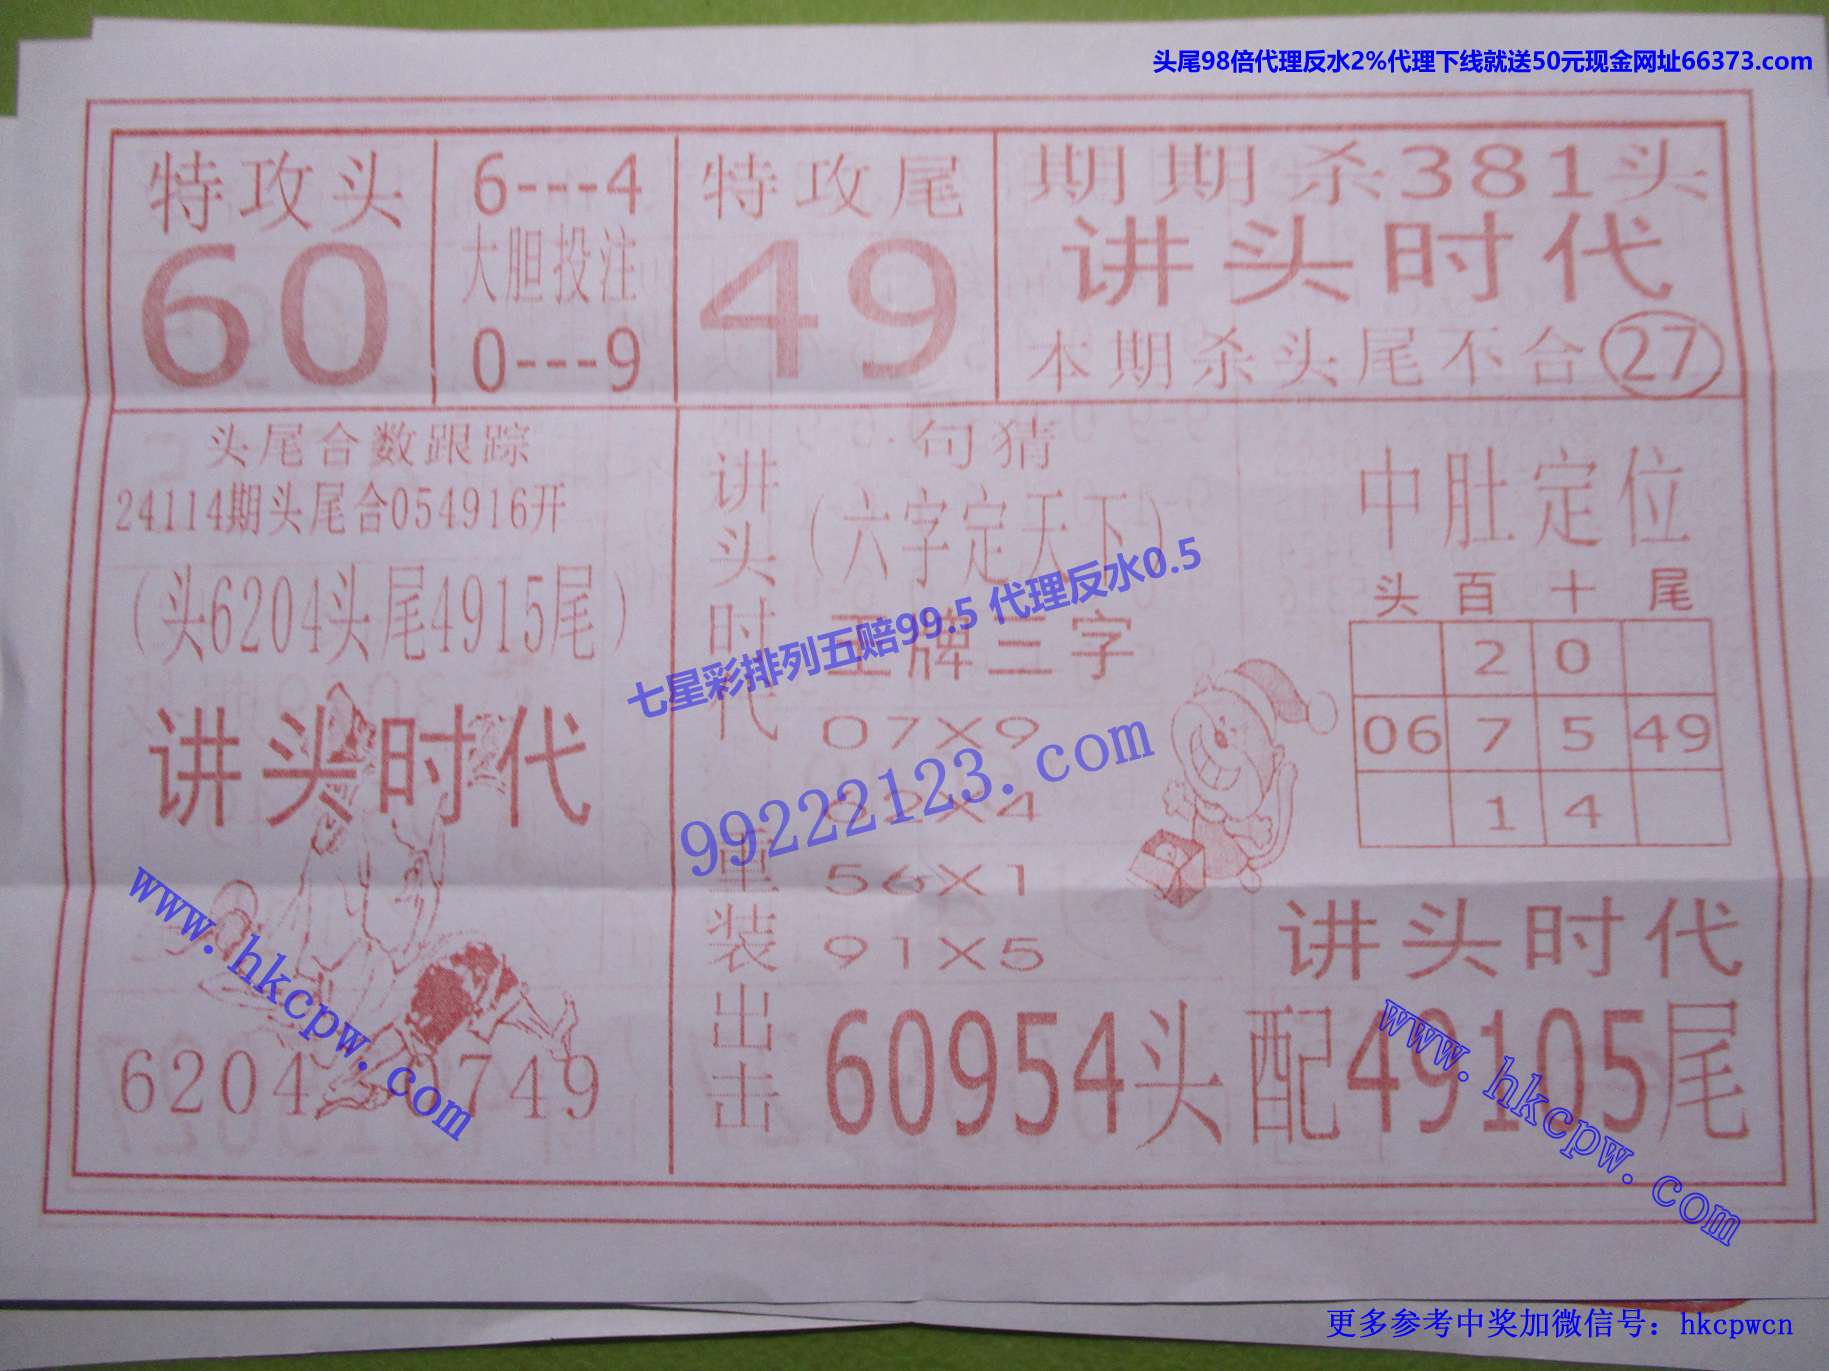 头尾98倍代理反水2%代理下线就送50元现金网址66373.com
特攻头
60
6---4
大胆投注
0---9
特攻尾
49
期期杀381头
讲头时代
本期杀头尾不合27
头尾合数跟踪
24114期头尾合054916开
(头6204头尾4915尾)
讲头时代
6204 0749
讲头时代
重装出击
句猜
(六字定天下)
王牌三字
07X9
02X4
56X1
91X5
中肚定位
头 百 十 尾
2 0
06 7 5 49
1 4
讲头时代
60954头 配49105尾
七星彩排列五赔99.5 代理反水0.5
99222123.com
www.hkcpw.com
www.hkcpw.com
更多参考中奖加微信号：hkcpwcn